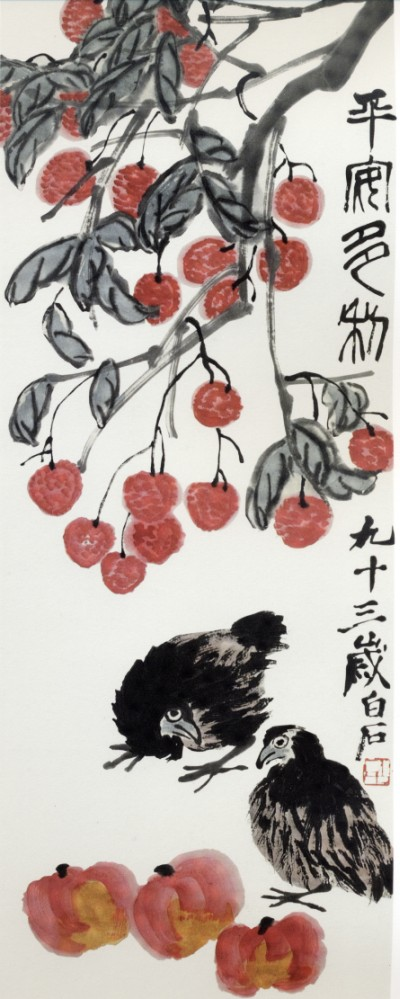 平安多利
九十三歲白石